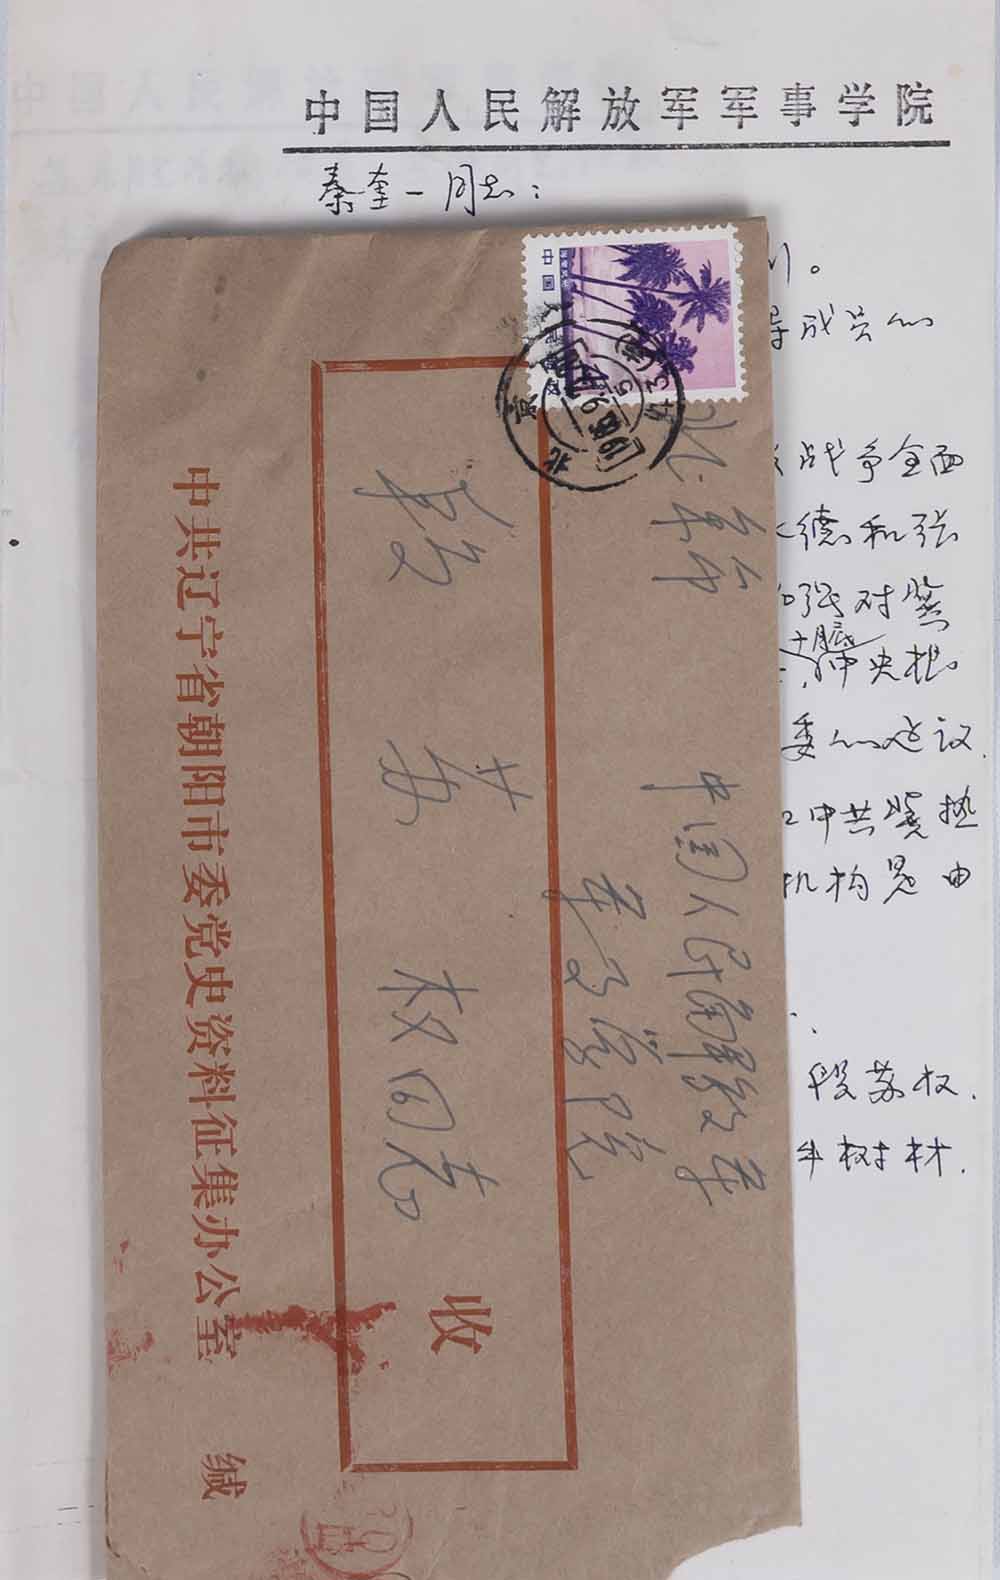 中国人民解放军军事学院
秦奎一同志：
导成员的
战争全面
德和张
对冀
十月底
中央根
委的建议
中共冀热
机构是由
段苏权
树材
北京
中国人民解放军
军事学院
段苏权同志
收
中共辽宁省朝阳市委党史资料征集办公室 缄
中国
北京